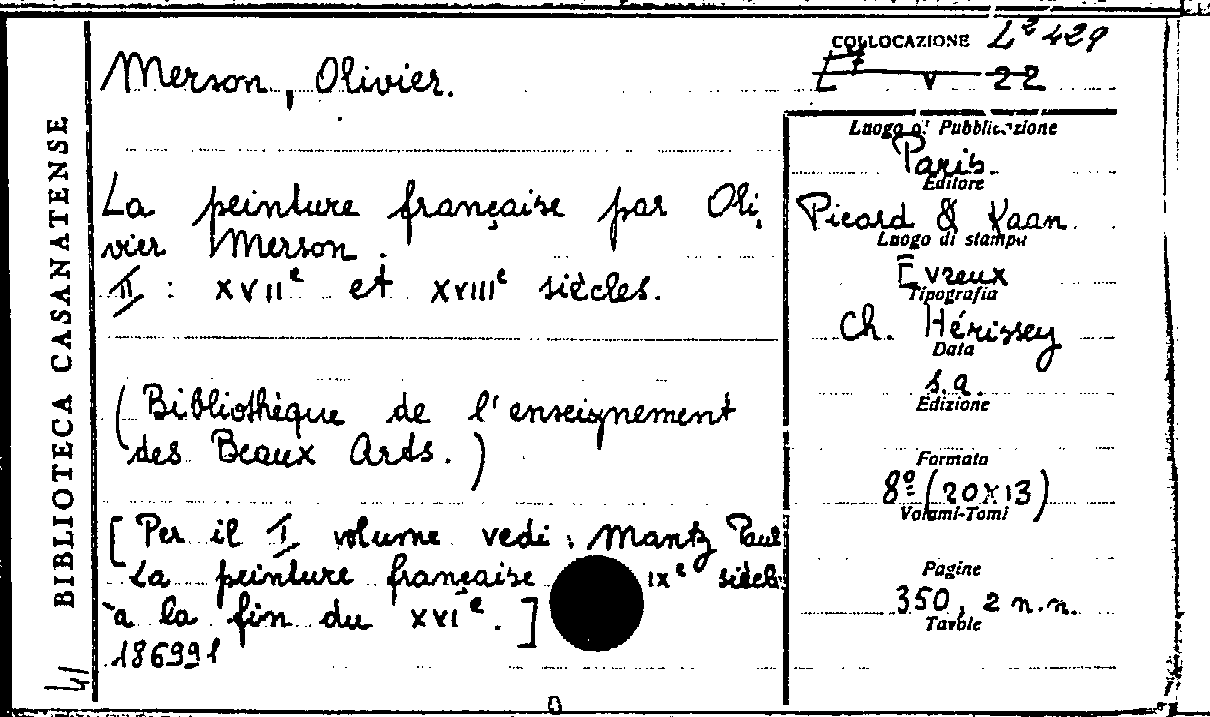 BIBLIOTECA CASANATENSE
Merson, Olivier.
La peinture française par Oli,
vier Merson.
II : XVIIe et XVIIIe siècles.
(Bibliothèque de l'enseignement
des Beaux Arts.)
[Per il I volume vedi: Mantz Paul
La peinture française IXe siècle
à la fin du XVIe.]
186991
COLLOCAZIONE L² 429
V 22
Luogo di Pubblicazione
Paris
Editore
Picard & Kaan
Luogo di stampa
Evreux
Tipografia
Ch. Hérissey
Data
s.a.
Edizione
Formato
8º (20x13)
Volumi-Tomi
Pagine
350, 2 n.n.
Tavole